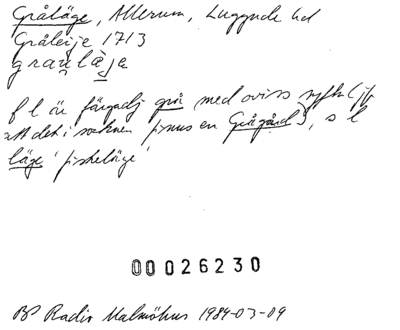 Gråläge, Allerum, Luggude hd
Gråleije 1713
graụlà̱je
f l är färgadj grå med oviss syftn (jfr
att det i socknen finns en Grågård), s l
läge 'fiskeläge'
00026230
BP Radio Malmöhus 1984-03-09